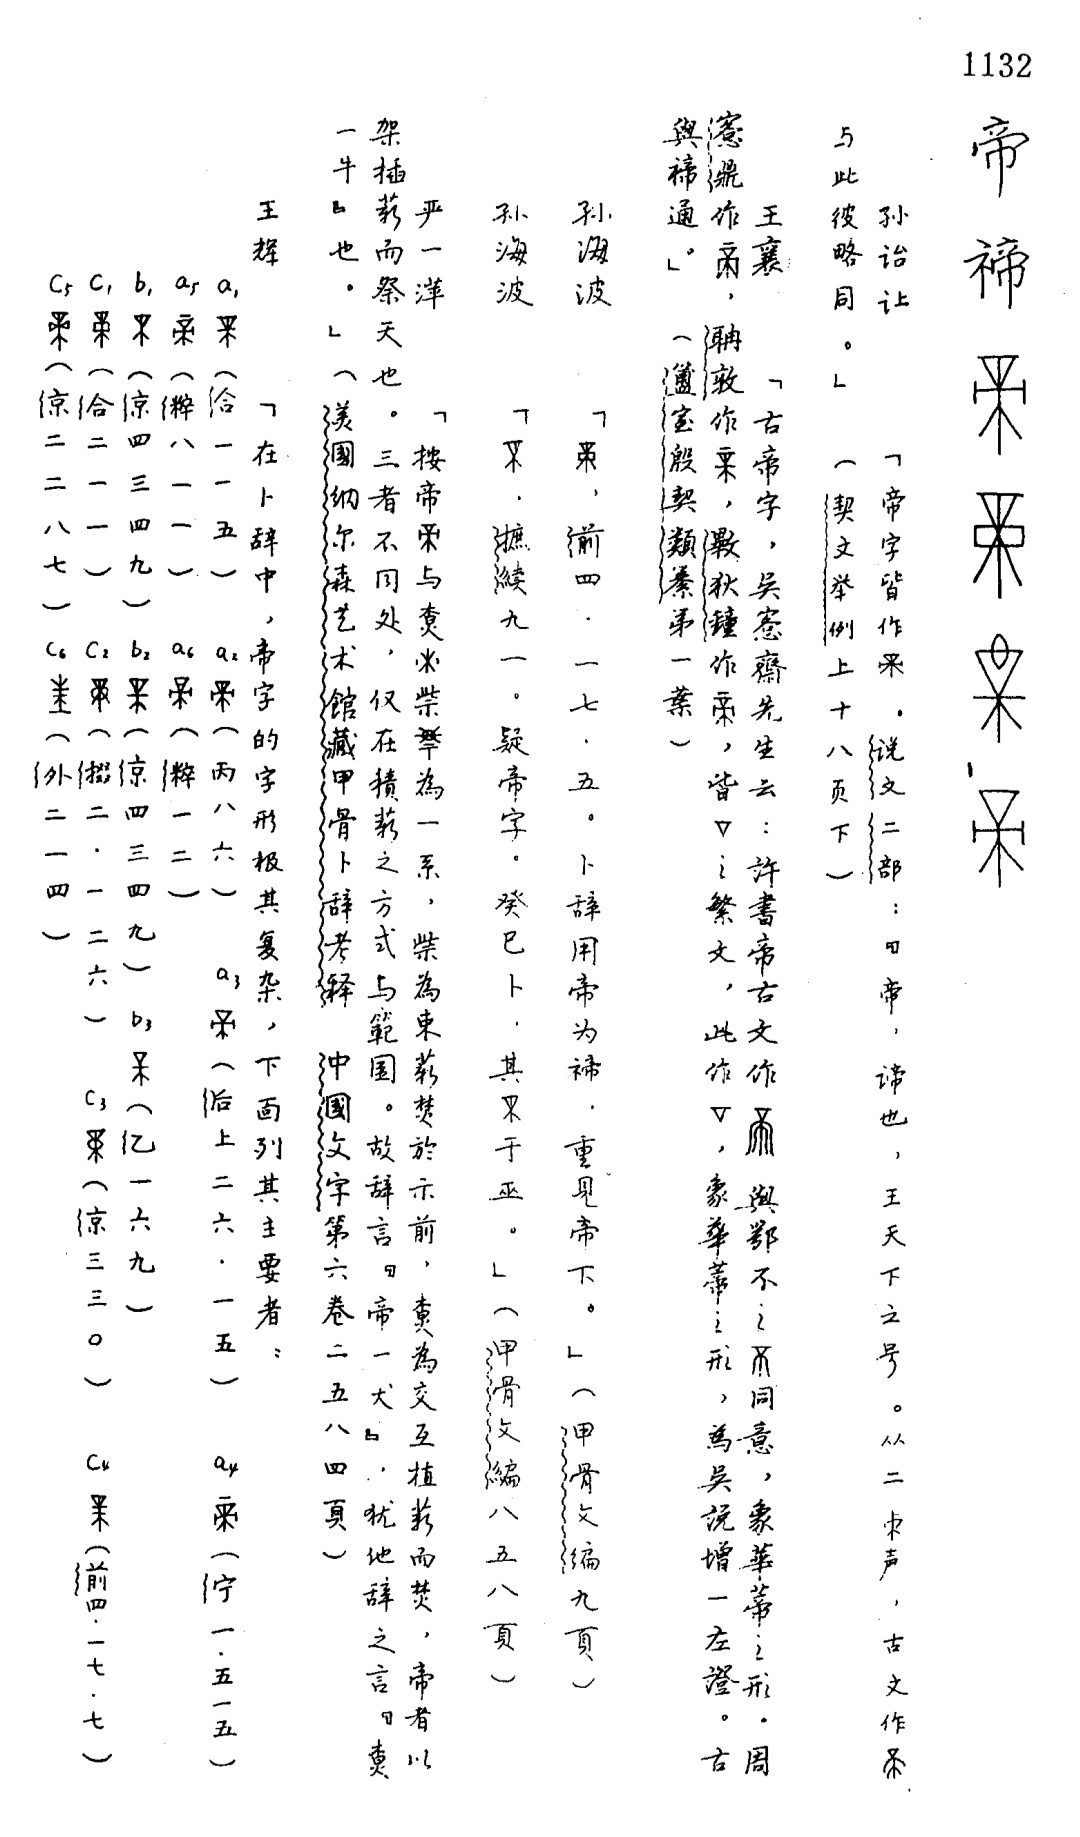 1132
帝 禘
孙诒让 「帝字皆作。说文二部:『帝,谛也,王天下之号。从二朿声,古文作
与此彼略同。」(契文举例上十八页下)
王襄 「古帝字,吴愙齋先生云:許書帝古文作 與鄂不之同意,象華蒂之形。周
愙鼎作,聃敦作,斁狄鐘作,皆▽之繁文,此作▽,象華蒂之形,為吴説增一左證。古
與禘通。」(簠室殷契類纂第一葉)
孙海波 「,前四·一七·五。卜辞用帝为禘,重見帝下。」(甲骨文编九頁)
孙海波 「,摭续九一。疑帝字。癸巳卜,其于巫。」(甲骨文編八五八頁)
严一萍 「按帝与燎柴為一系,柴為束薪焚於示前,寮為交互植薪而焚,帝者以
架插薪而祭天也。三者不同处,仅在積薪之方式与範圍。故辞言『帝一犬』,犹他辞之言『寮
一牛』也。」(美國纳尔森艺术館藏甲骨卜辞考释 中國文字第六卷二五八四頁)
王辉 「在卜辞中,帝字的字形极其复杂,下面列其主要者:
a₁(合一一五) a₂(丙八六) a₃(后上二六·一五) a₄(宁一·五一五)
a₅(粹八一一) a₆(粹一二)
b₁(京四三四九) b₂(京四三四九) b₃(乙一六九)
c₁(合二一一) c₂(掇二·一二六) c₃(京三三〇) c₄(前四·一七·七)
c₅(京二二八七) c₆(外二一四)